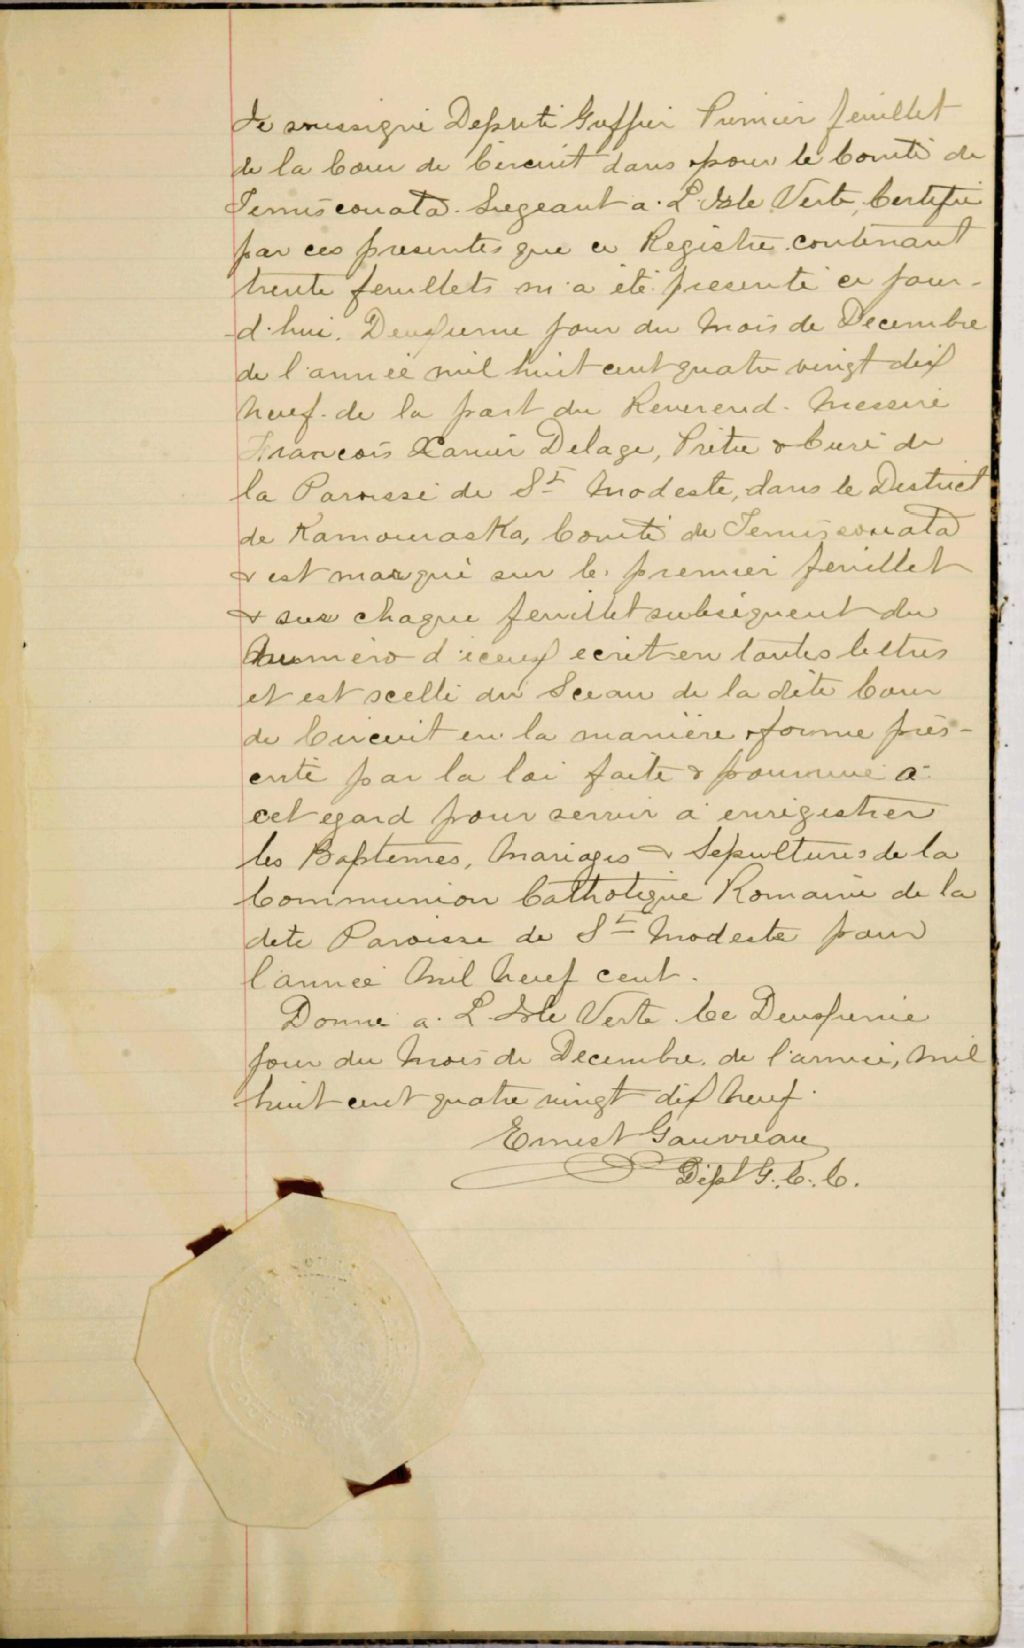 Je soussigné Deputé Greffier Premier feuillet
de la Cour de Circuit dans & pour le Comté de
Temiscouata. Siegeant a. L'Isle Verte, Certifie
par ces presentes que ce Registre contenant
trente feuillets m'a été presenté ce jour-
-d'hui. Deuxieme jour du Mois de Decembre
de l'année mil huit cent quatre vingt dix
neuf. de la part du Reverend. Messire
François Xavier Delage, Prêtre & Curé de
la Paroisse de St Modeste, dans le District
de Kamouraska, Comté de Temiscouata
& est marqué sur le premier feuillet
& sur chaque feuillet subséquent du
Numéro d'iceux ecrit en toutes lettres
et est scellé du Sceau de la dite Cour
de Circuit en la manière & forme prés-
crite par la loi faite & pourvue à
cet egard pour servir à enrégistrer
les Baptemes, Mariages & Sépultures de la
Communion Catholique Romaine de la
dite Paroisse de St Modeste pour
l'année Mil Neuf cent.
Donné a. L'Isle Verte. Ce Deuxieme
jour du Mois de Decembre. de l'année, Mil
huit cent quatre vingt dix Neuf.
Ernest Gauvreau
Dépt G. C. C.